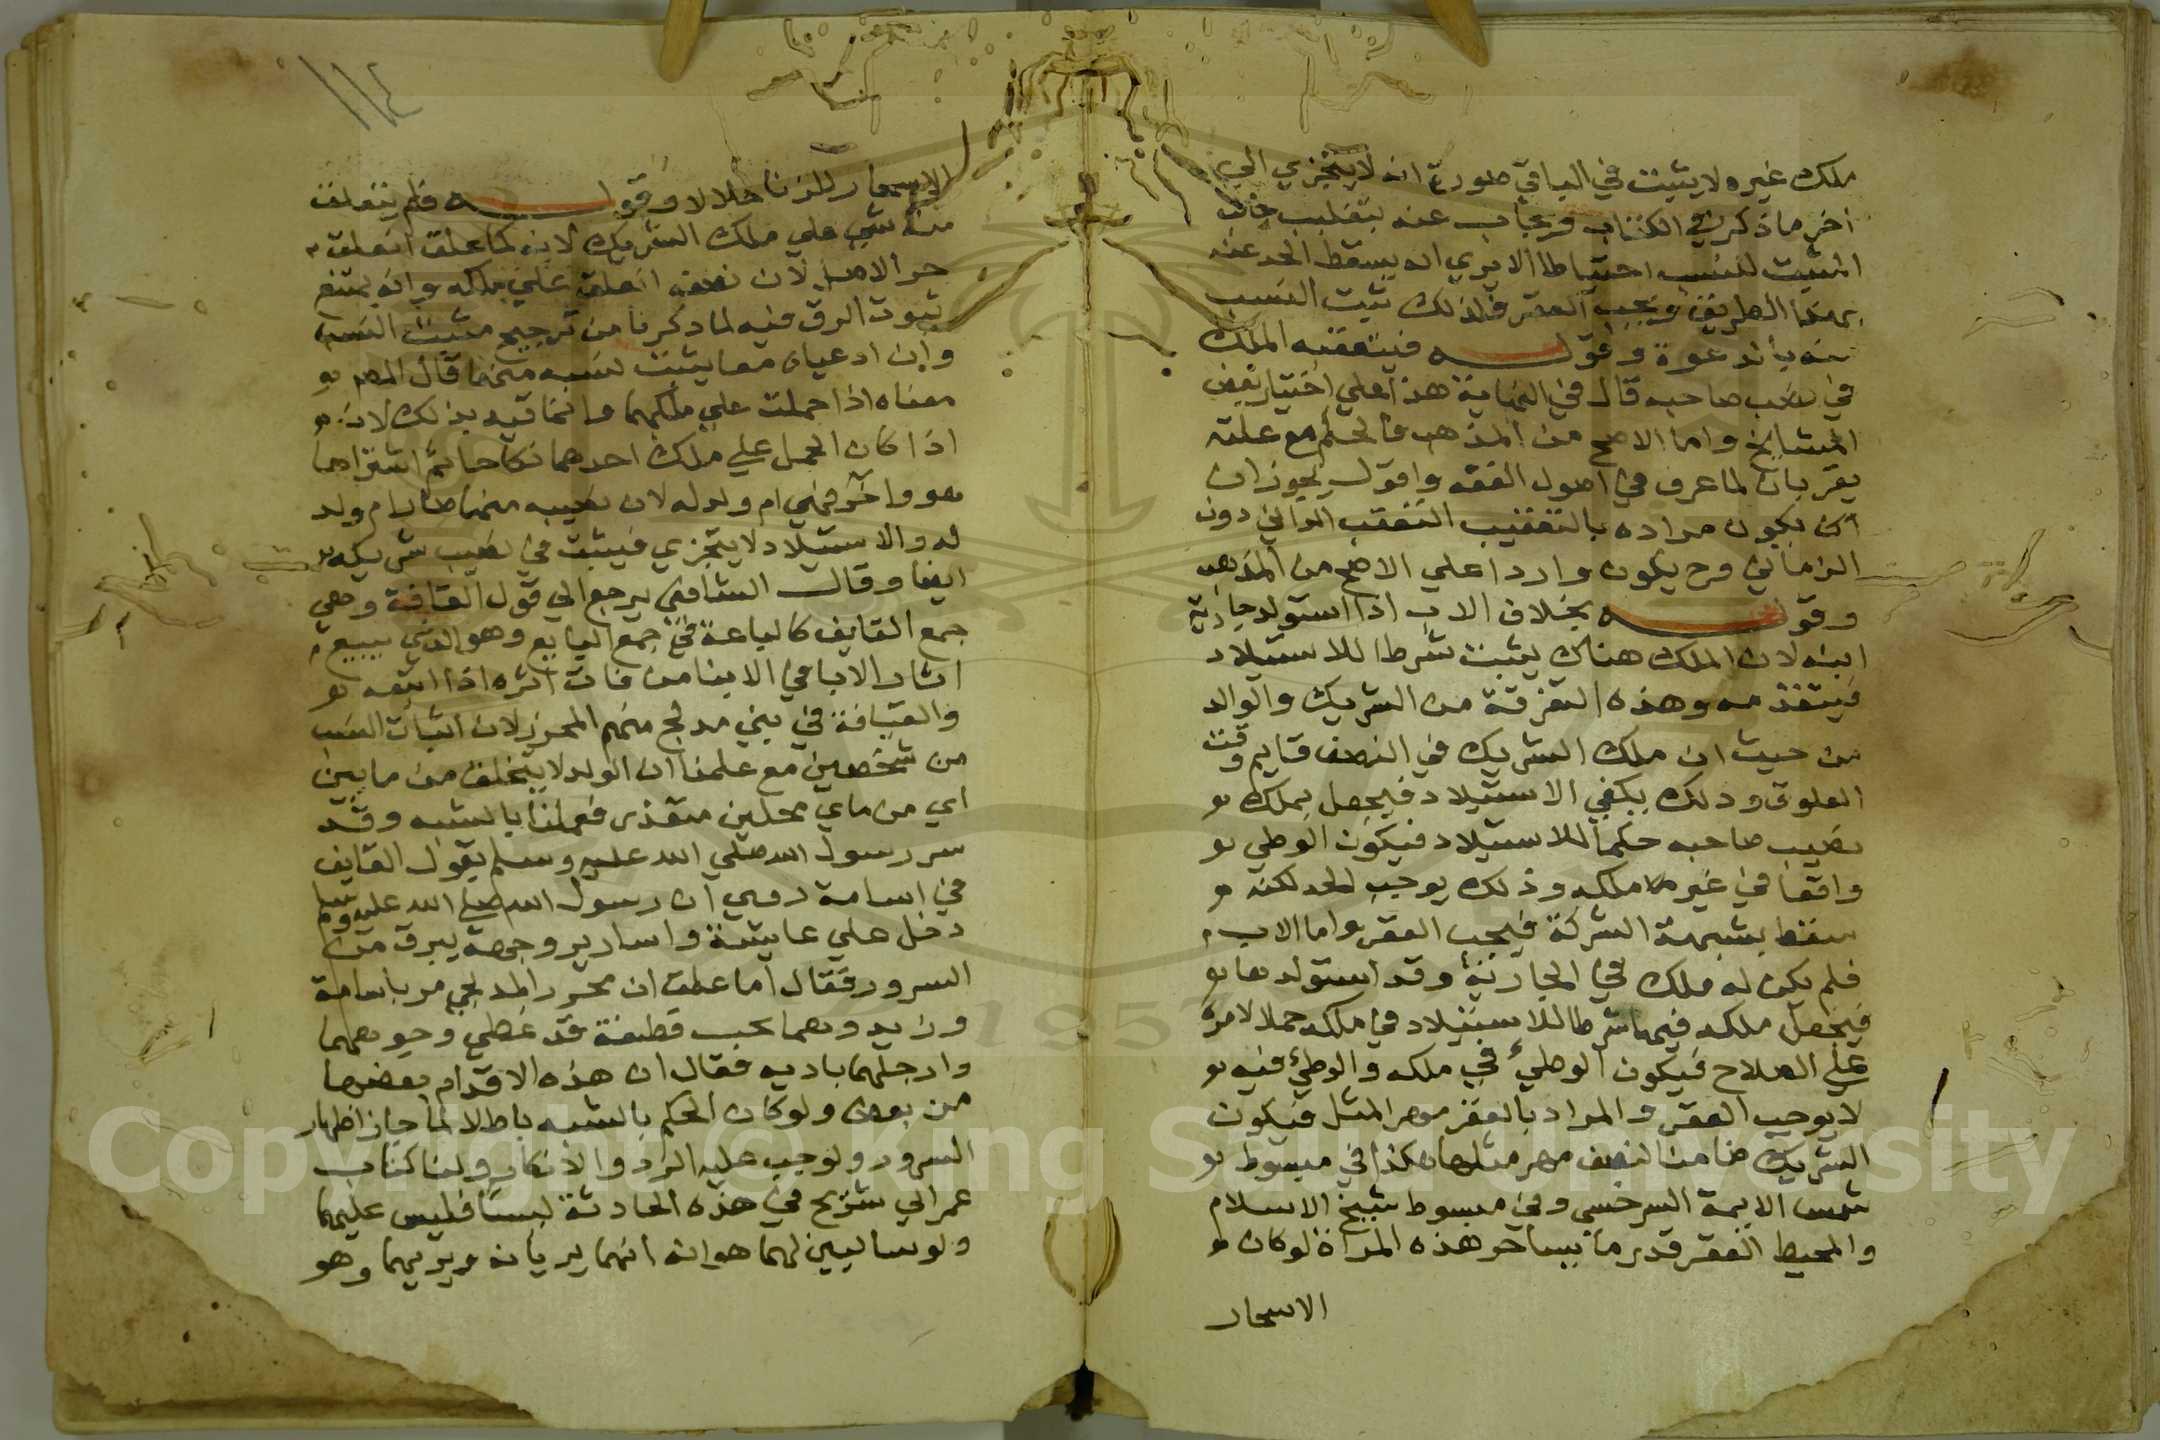 ملك غيره لا يثبت في الباقي ضرورة انه لا يتجزي الي
اخر ما ذكر في الكتاب ويجاب عنه بتغليب جانب
المثبت للنسب احتياطا الا يري انه يسقط الحد عنه
بهذا الطريق ويجب العقر فلذلك يثبت النسب
منه بالدعوة وقوله فيتعقبه الملك
في نصيب صاحبه قال في النهاية هذا علي اختيار بعض
المشايخ واما الاصح من المذهب فالحكم مع علته
يقربان لما عرف في اصول الفقه واقول يجوز ان
ان يكون مراده بالتعقيب التعقب الذاتي دون
الزماني وح يكون واردا علي الاصح من المذهب
وقوله بخلاف الاب اذا استولد جارية
ابنه لان الملك هناك يثبت شرطا للاستيلاد
فيتقدمه وهذه التفرقة من الشريك والوالد
من حيث ان ملك الشريك في النصف قايم وقت
العلوق وذلك يكفي الاستيلاد فيجعل بملك
نصيب صاحبه حكما للاستيلاد فيكون الوطي
واقعا في غير ملكه وذلك يوجب الحد لكنه
سقط بشبهة الشركة فيجب العقر واما الاب
فلم يكن له ملك في الجارية وقد استولدها
فيجعل ملكه فيها شرطا للاستيلاد في ملكه حملا لامره
علي الصلاح فيكون الوطئ في ملكه والوطئ فيه
لا يوجب العقر والمراد بالعقر مهر المثل فيكون
الشريك ضامنا لنصف مهر مثلها هكذا في مبسوط
شمس الايمة السرخسي وفي مبسوط شيخ الاسلام
والمحيط العقر قدر ما يستاجر هذه المراة لو كان
الاسحار
١١٤
الاسحار للزنا حلالا وقوله فلم يتعلق
منه شي علي ملك الشريك لانه لما علق انعلق
حر الاصل لان نصفه انعلق علي ملكه وانه يمنع
ثبوت الرق فيه لما ذكرنا من ترجيح مثبت النسب
وان ادعياه معا يثبت نسبه منهما قال المص
معناه اذا حملت علي ملكهما وانما قيد بذلك لانه
اذا كان الحمل علي ملك احدهما نكاحا ثم اشتراها
هو واخر فهي ام ولد له لان نصيبه منها صار ام ولد
له والاستيلاد لا يتجزي فيثبت في نصيب شريكه
ايضا وقال الشافعي يرجع الي قول القافة وهي
جمع القايف كالباعة في جمع البايع وهو الذي يتبع
اثار الابا في الابنا من قاف اثره اذا اتبعه
والقيافة في بني مدلج منهم المجزز لان اثبات النسب
من شخصين مع علمنا ان الولد لا يتخلق من مايين
اي من ماي فحلين متعذر فعملنا بالشبه وقد
سر رسول الله صلي الله عليه وسلم بقول القايف
في اسامة روي ان رسول الله صلي الله عليه وسلم
دخل علي عايشة واسارير وجهه يبرق من
السرور فقال اما علمت ان مجزر المدلجي مر باسامة
وزيد وهما تحت قطيفة قد غطي وجوههما
وارجلهما باديه فقال ان هذه الاقدام بعضها
من بعض ولو كان الحكم بالشبه باطلا لما جاز اظهار
السرور ولوجب عليه الرد والانكار ولنا كتاب
عمر الي شريح في هذه الحادثة لبسا فلبس عليهما
ولو بينا لبين لهما هو ابنهما يرثانه ويرثهما وهو
Copyright © King Saud University
1957